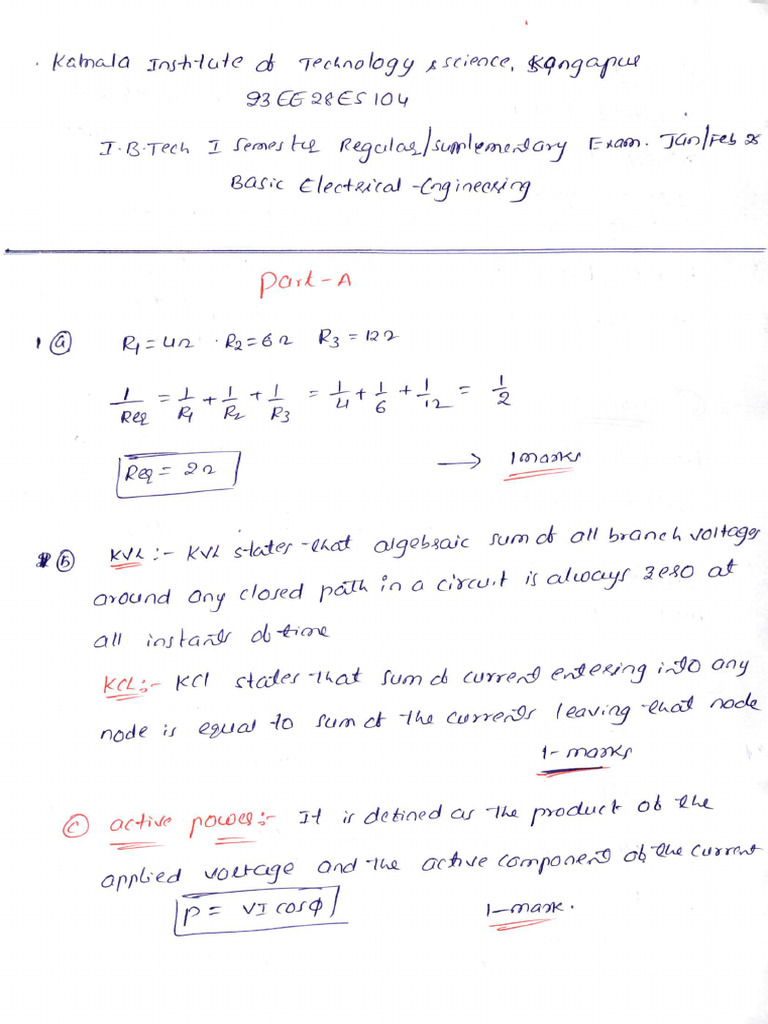 Kamala Institute of Technology & science, Singapur
93EE28ES104
I.B.Tech I Semester Regular/Sumlementary Exam. Jan/Feb 25
Basic Electrical Engineering
Part-A
1 (a) R1=4Ω R2=6Ω R3=12Ω
1/Req = 1/R1 + 1/R2 + 1/R3 = 1/4 + 1/6 + 1/12 = 1/2
Req = 2Ω → 1marks
(b) KVL :- KVL states that algebraic sum of all branch voltages
around any closed path in a circuit is always zero at
all instants of time
KCL:- KCl states that sum of current entering into any
node is equal to sum of the currents leaving that node
1-marks
(c) active power:- It is defined as the product of the
applied voltage and the active component of the current
P = VI cosϕ 1-mark.